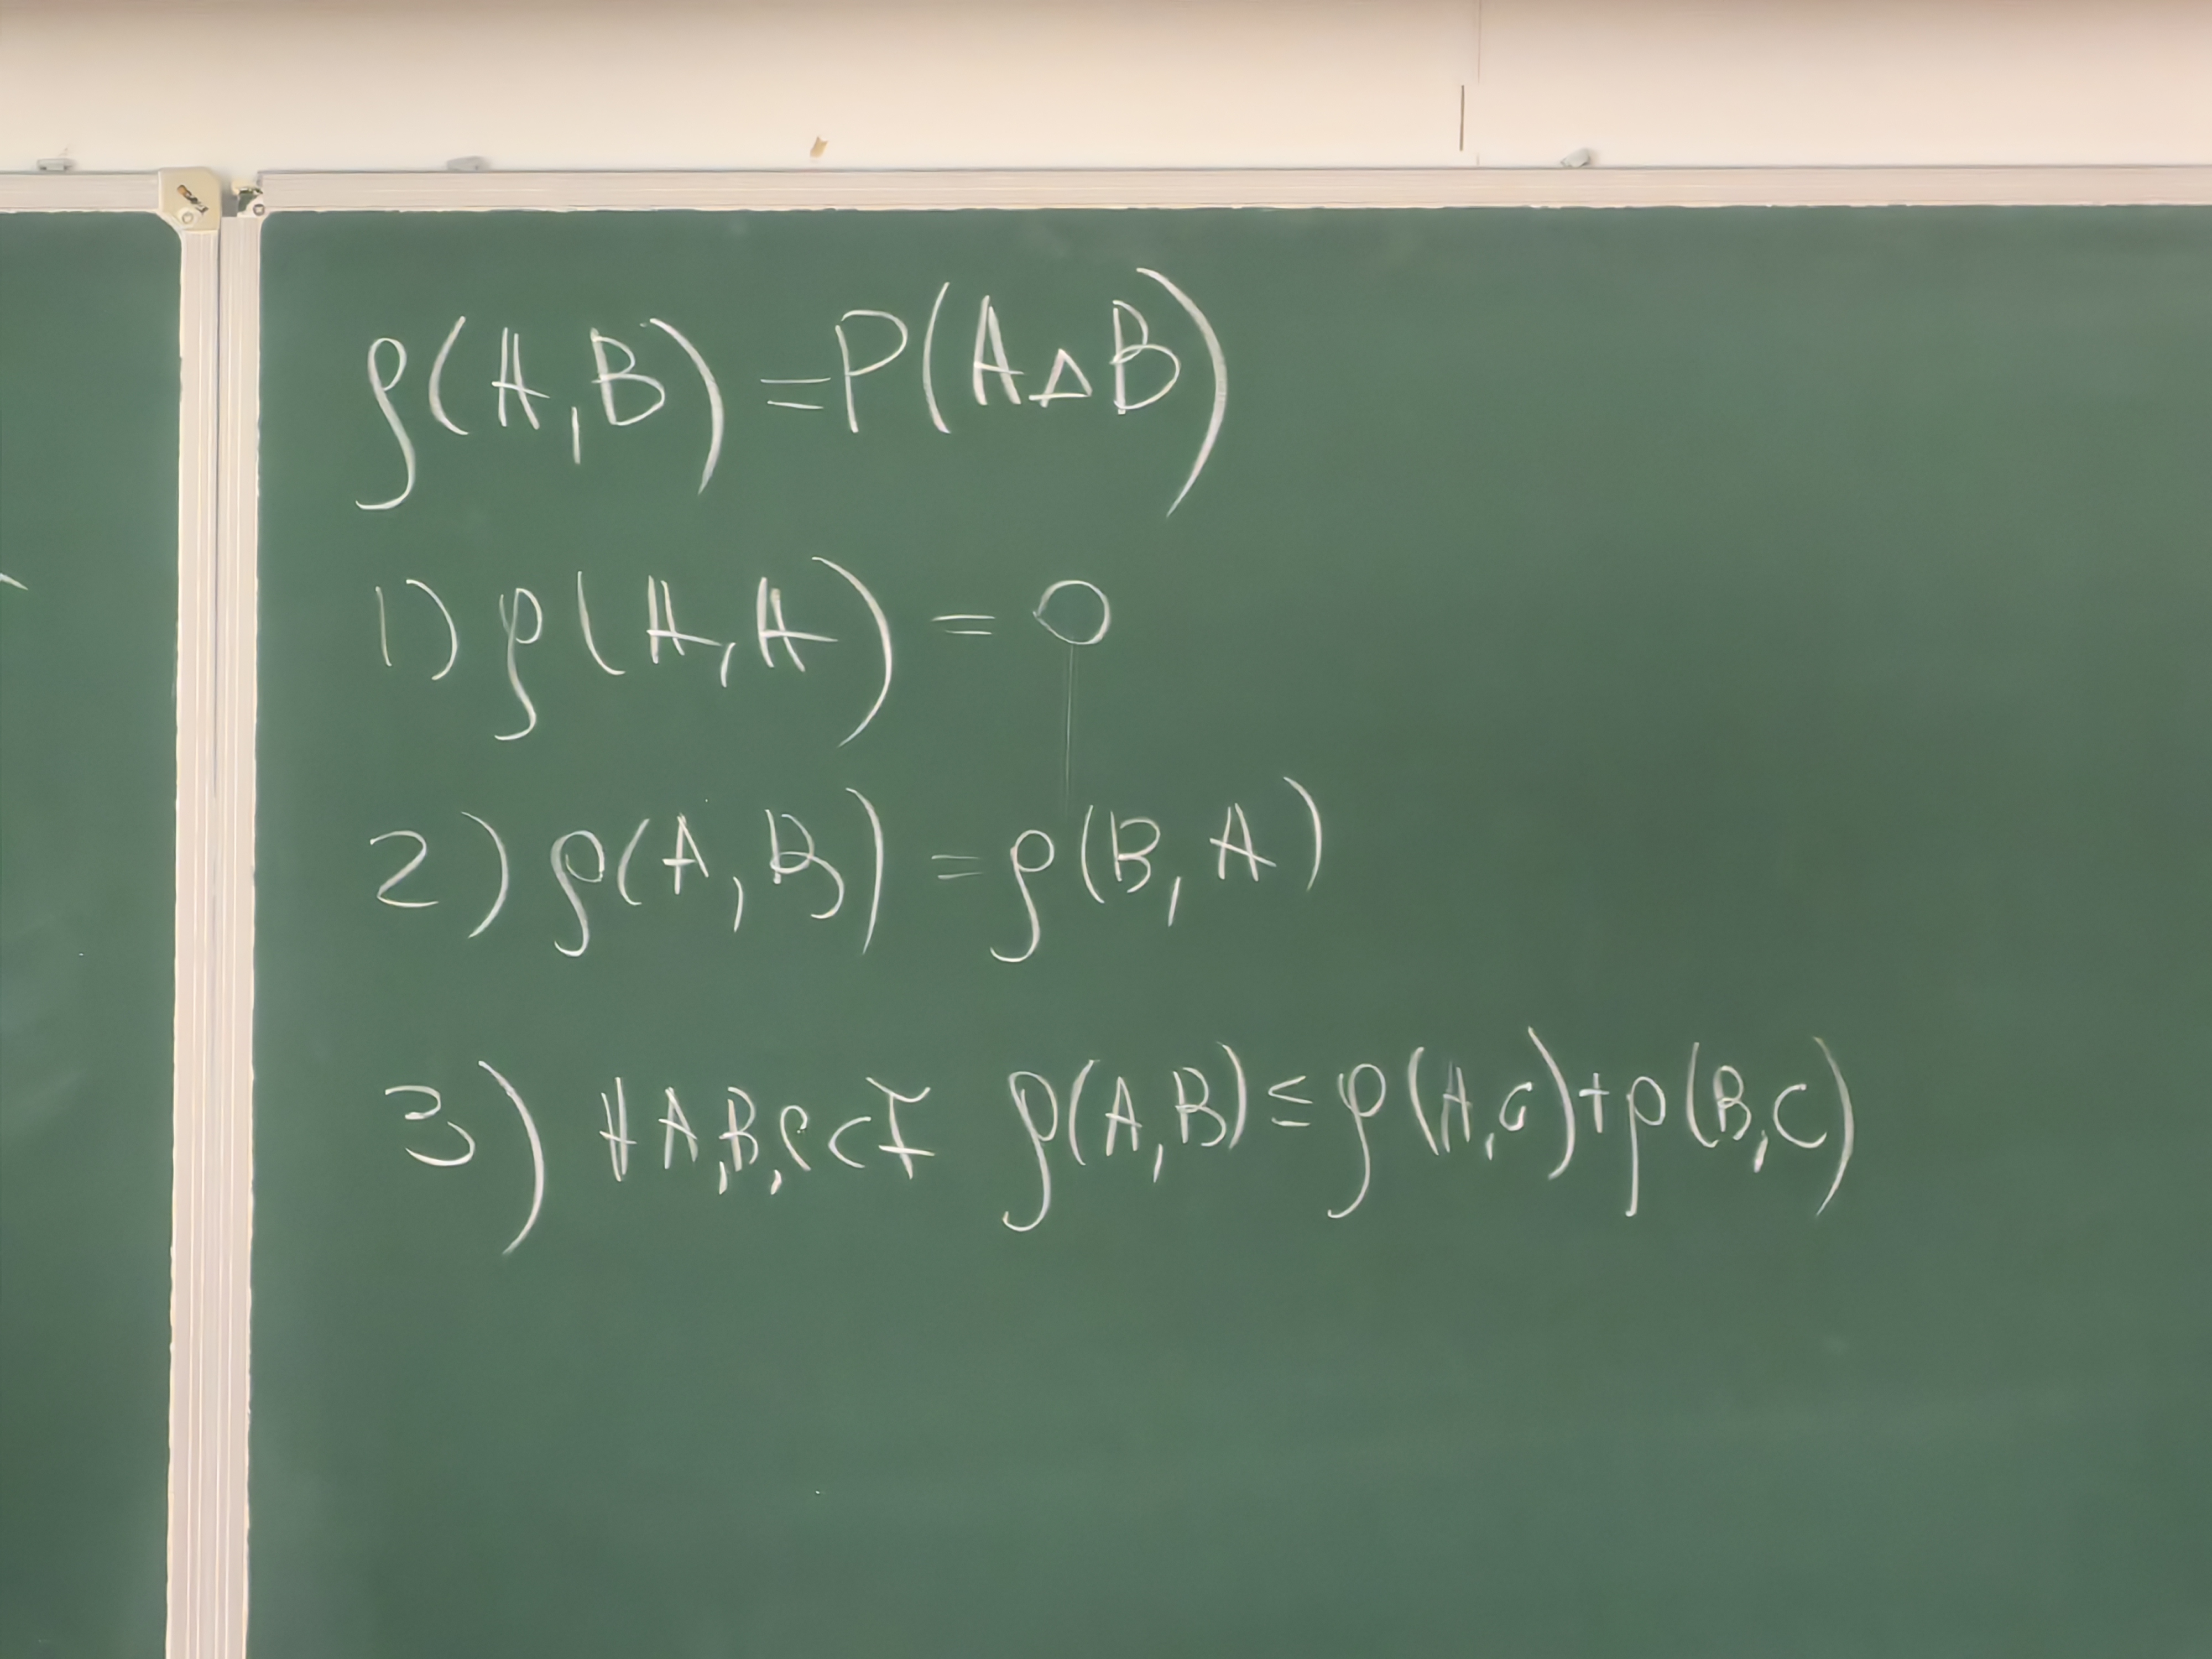 ρ(A,B) = P(A△B)
1) ρ(A,A) = 0
2) ρ(A,B) = ρ(B,A)
3) ∀A,B,C⊂F ρ(A,B) ≤ ρ(A,C)+ρ(B,C)